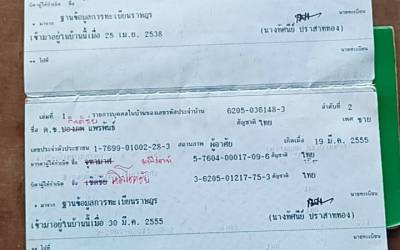 * มาจาก ฐานข้อมูลการทะเบียนราษฎร
เข้ามาอยู่ในบ้านนี้เมื่อ 25 เม.ย. 2538 (นางทัศนีย์ ปราสาททอง) นายทะเบียน
** ไปที่
นายทะเบียน
เล่มที่ 1 รายการบุคคลในบ้านของเลขรหัสประจำบ้าน 6205-036148-3 ลำดับที่ 2
ชื่อ ด.ช. แพรพันธ์ สัญชาติ ไทย เพศ ชาย
เลขประจำตัวประชาชน 1-7699-01002-28-3 สถานภาพ ผู้อาศัย เกิดเมื่อ 19 มี.ค. 2555
มารดาผู้ให้กำเนิด ชื่อ 5-7604-00017-09-6 สัญชาติ ไทย
บิดาผู้ให้กำเนิด ชื่อ 3-6205-01217-75-3 สัญชาติ ไทย
* มาจาก ฐานข้อมูลการทะเบียนราษฎร
เข้ามาอยู่ในบ้านนี้เมื่อ 30 มี.ค. 2555 (นางทัศนีย์ ปราสาททอง) นายทะเบียน
** ไปที่